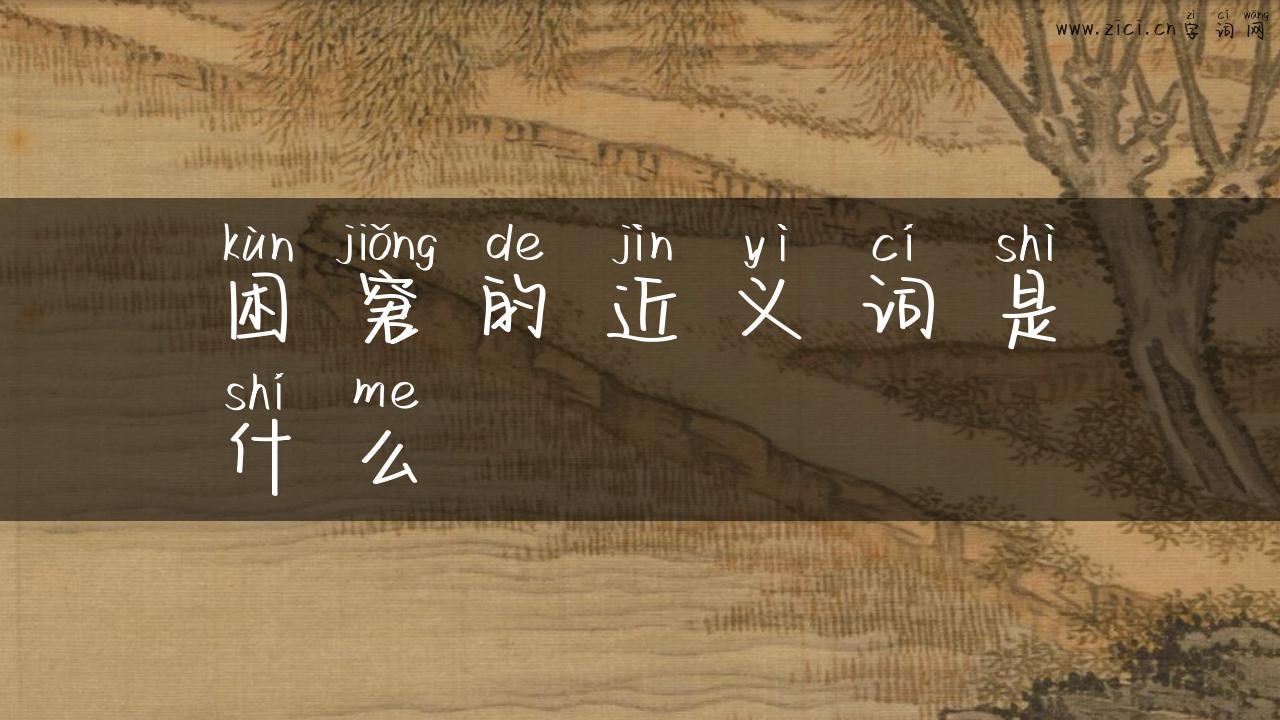 zì cí wǎng
www.zici.cn字词网
kùn jiǒng de jìn yì cí shì
困窘的近义词是
shí me
什么